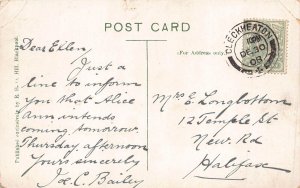 POST CARD
For Address only.
CLECKHEATON
DE 30
08
Dear Ellen,
Just a
line to inform
you that Alice
Ann intends
coming tomorrow,
Thursday afternoon
Yours sincerely
C. Bailey
Mrs E Longbottom
12 Temple St
New. Rd
Halifax
Published exclusively by